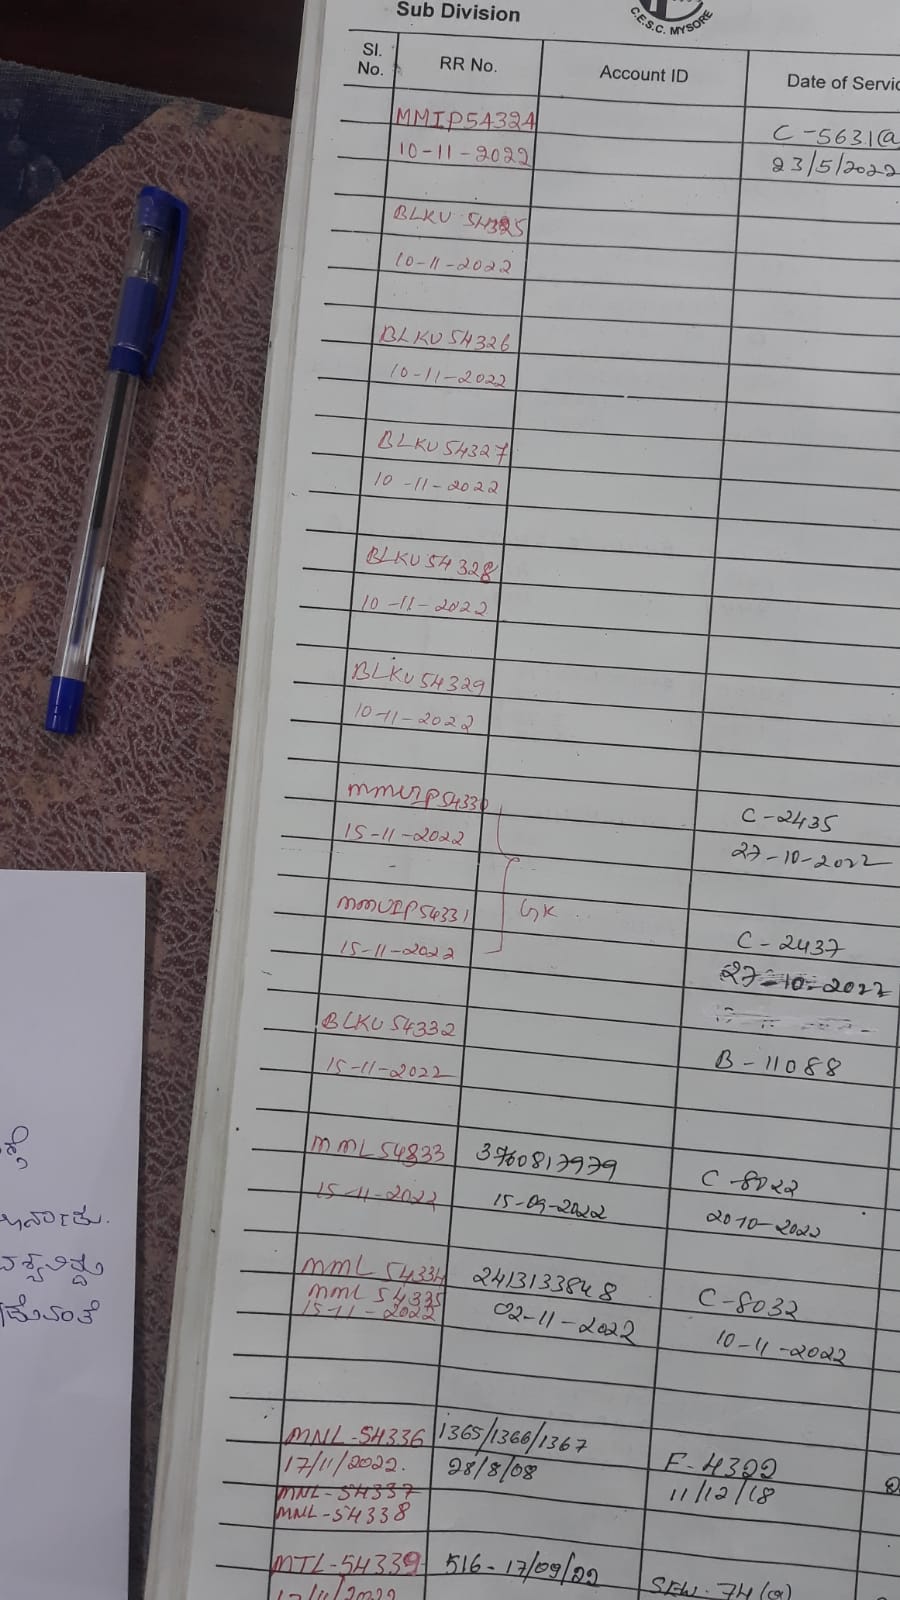 Sub Division
C.E.S.C. MYSORE
Sl. No. RR No. Account ID Date of Servic
MMIP54324
C-5631(a
10-11-2022
23/5/2022
BLKV 54325
10-11-2022
BLKV 54326
10-11-2022
BLKV 54327
10-11-2022
BLKV 54328
10-11-2022
BLKV 54329
10-11-2022
MMVIP54330
C-2435
15-11-2022
27-10-2022
MMVIP54331
GK
C-2437
15-11-2022
27-10-2022
BLKV 54332
B-11088
15-11-2022
MML 54333 3760817979 C-8022
15-11-2022 15-09-2022 2010-2022
MML 54334 2413133848 C-8032
MML 54335
15-11-2022 02-11-2022 10-11-2022
MNL-54336 1365/1366/1367 F-4322
17/11/2022. 28/8/08 11/12/18
MNL-54337
MNL-54338
MTL-54339 516-17/09/22 SEW.74(a)
17/11/2022